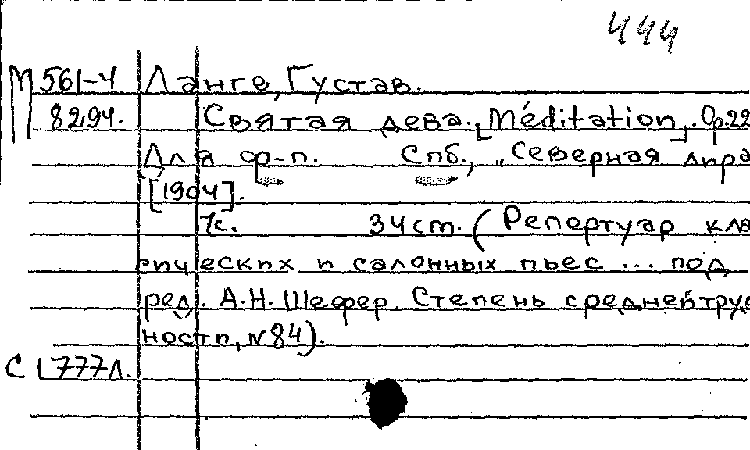 444
М 561-4 Ланге, Густав.
8294. Святая дева. [Méditation]. Op.22
Для ф-п. Спб., „Северная лира
[1904].
7с. 34 cm. (Репертуар кла
сических и салонных пьес ... под
ред. А.Н. Шефер. Степень средней труд
ности, № 84).
С 1777л.